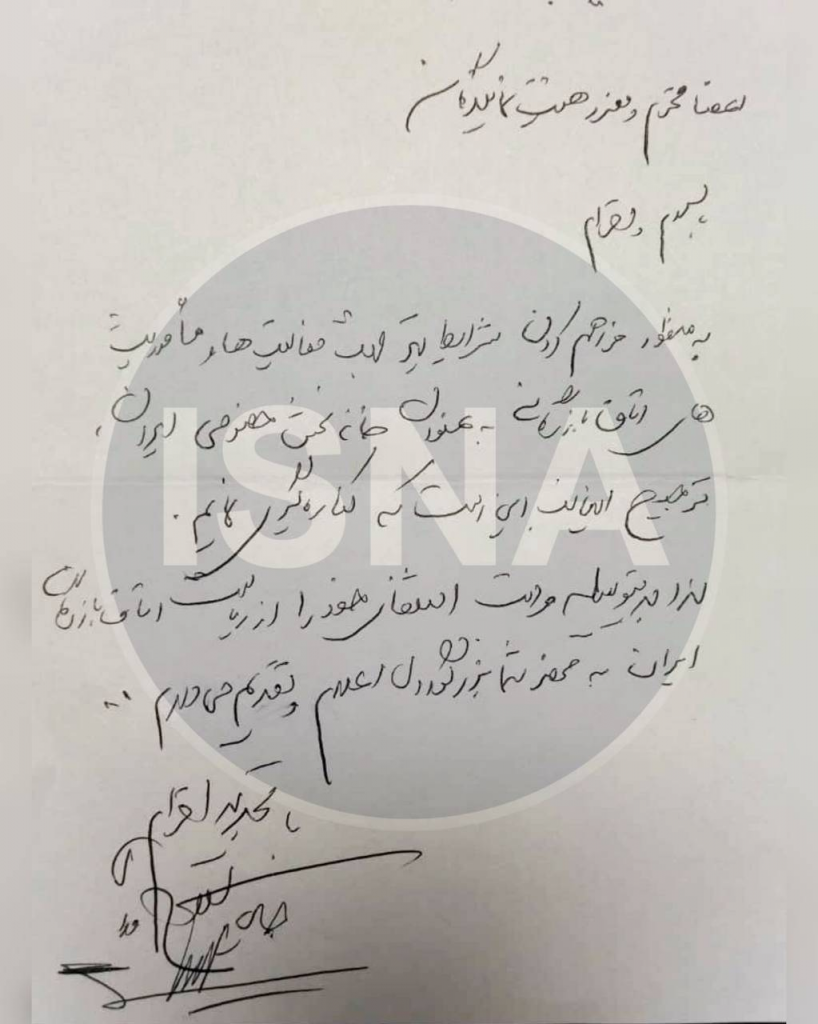 اعضا محترم و معزز هیئت نمایندگان
با سلام و احترام
به منظور فراهم کردن شرایط بهتر جهت فعالیت ها و مأموریت
های اتاق بازرگانی به عنوان خانه بخش خصوصی ایران،
ترجیح اینجانب این است که کناره گیری نمایم.
لذا بدینوسیله مراتب استعفای خود را از ریاست اتاق بازرگانی
ایران به محضر شما بزرگواران اعلام و تقدیم می دارم ..
با تجدید احترام
ISNA